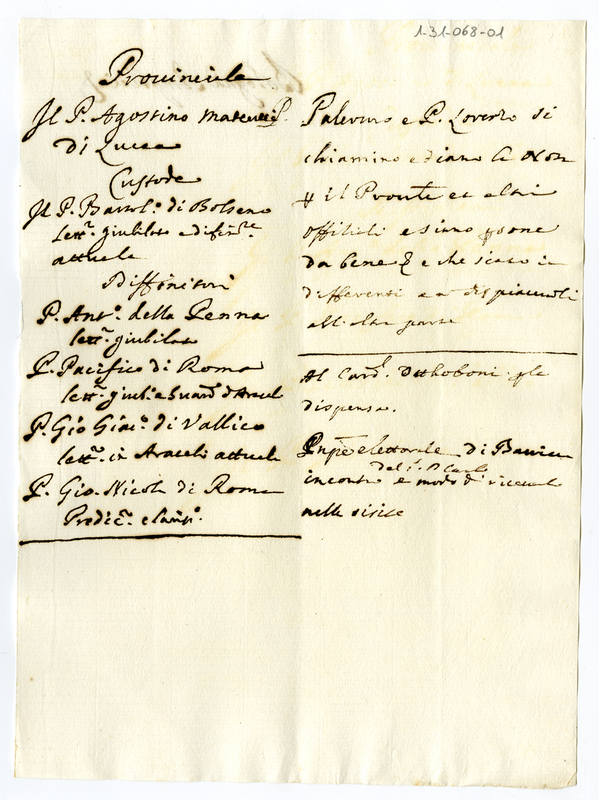 1-31-068-01
Provinciale
Il P. Agostino Matteucci P.
di Lucca
Custode
Il P. Bartol.º di Bolseno
lett.ᵉ giubilato e difin.ʳᵉ
attuale
Diffinitori
P. Ant.º della Penna
lett.ᵉ giubilato
P. Pacifico di Roma
lett.ᵉ giub.º e Guard.º d'Aracel
P. Gio Giac.º di Vallico
lett.ᵉ in Araceli attuale
P. Gio. Nicola di Roma
Predic.ᵉ
Palermo e P. Lovero si
chiamino e diano le
il et altri
offitiali e siano
da bene e che siano in
differenti e n dispiacevoli
all'altra parte
Al Card. Otthoboni
dispensa.
elettorale di Baviera
del P. Carlo
incontro e modo di riceverlo
nelle visite